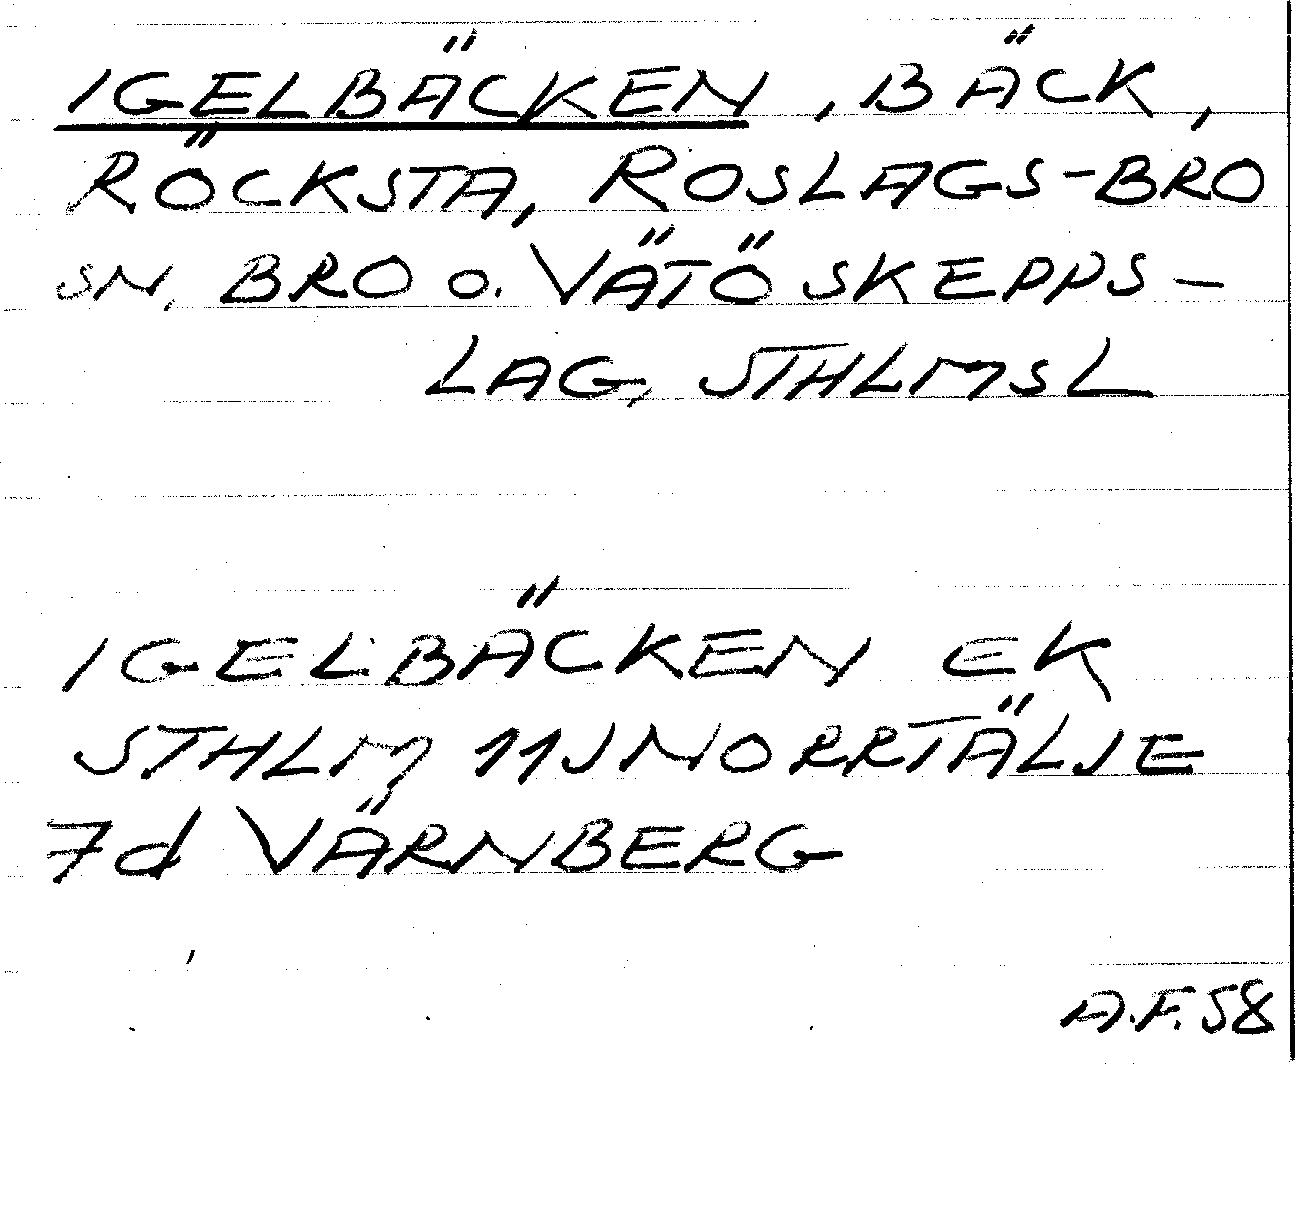 IGELBÄCKEN, BÄCK,
RÖCKSTA, ROSLAGS-BRO
SN, BRO O. VÄTÖ SKEPPS-
LAG, STHLMSL
IGELBÄCKEN EK
STHLM 11J NORRTÄLJE
7d VÄRNBERG
A.F. 58